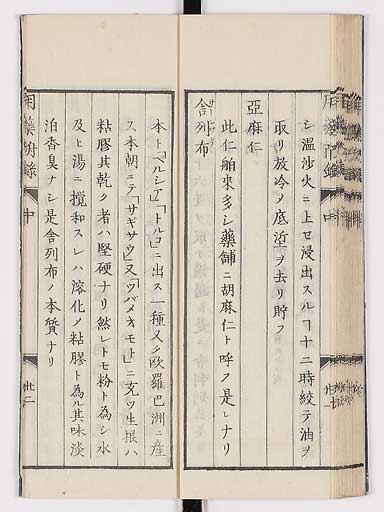 シ温沙火ニ上セ浸出スルヿ十二時絞テ油ヲ
取リ放冷ノ底滓ヲ去リ貯フ
亞麻仁
此仁舶來多シ藥舗ニ胡麻仁ト呼ク是レナリ
舎列布
本ト「ペルシア」「トルコ」ニ出ス一種又夕歐羅巴洲ニ産
ス本朝ニテ「サギサウ」又「ツバメオモト」ニ充ツ生根ハ
粘膠其乾ク者ハ堅硬ナリ然レトモ粉ト為シ水
及ヒ湯ニ攪和スレハ溶化ノ粘膠ト為ル其味淡
泊香臭ナシ是舎列布ノ本質ナリ
用藥附録 中 廿二